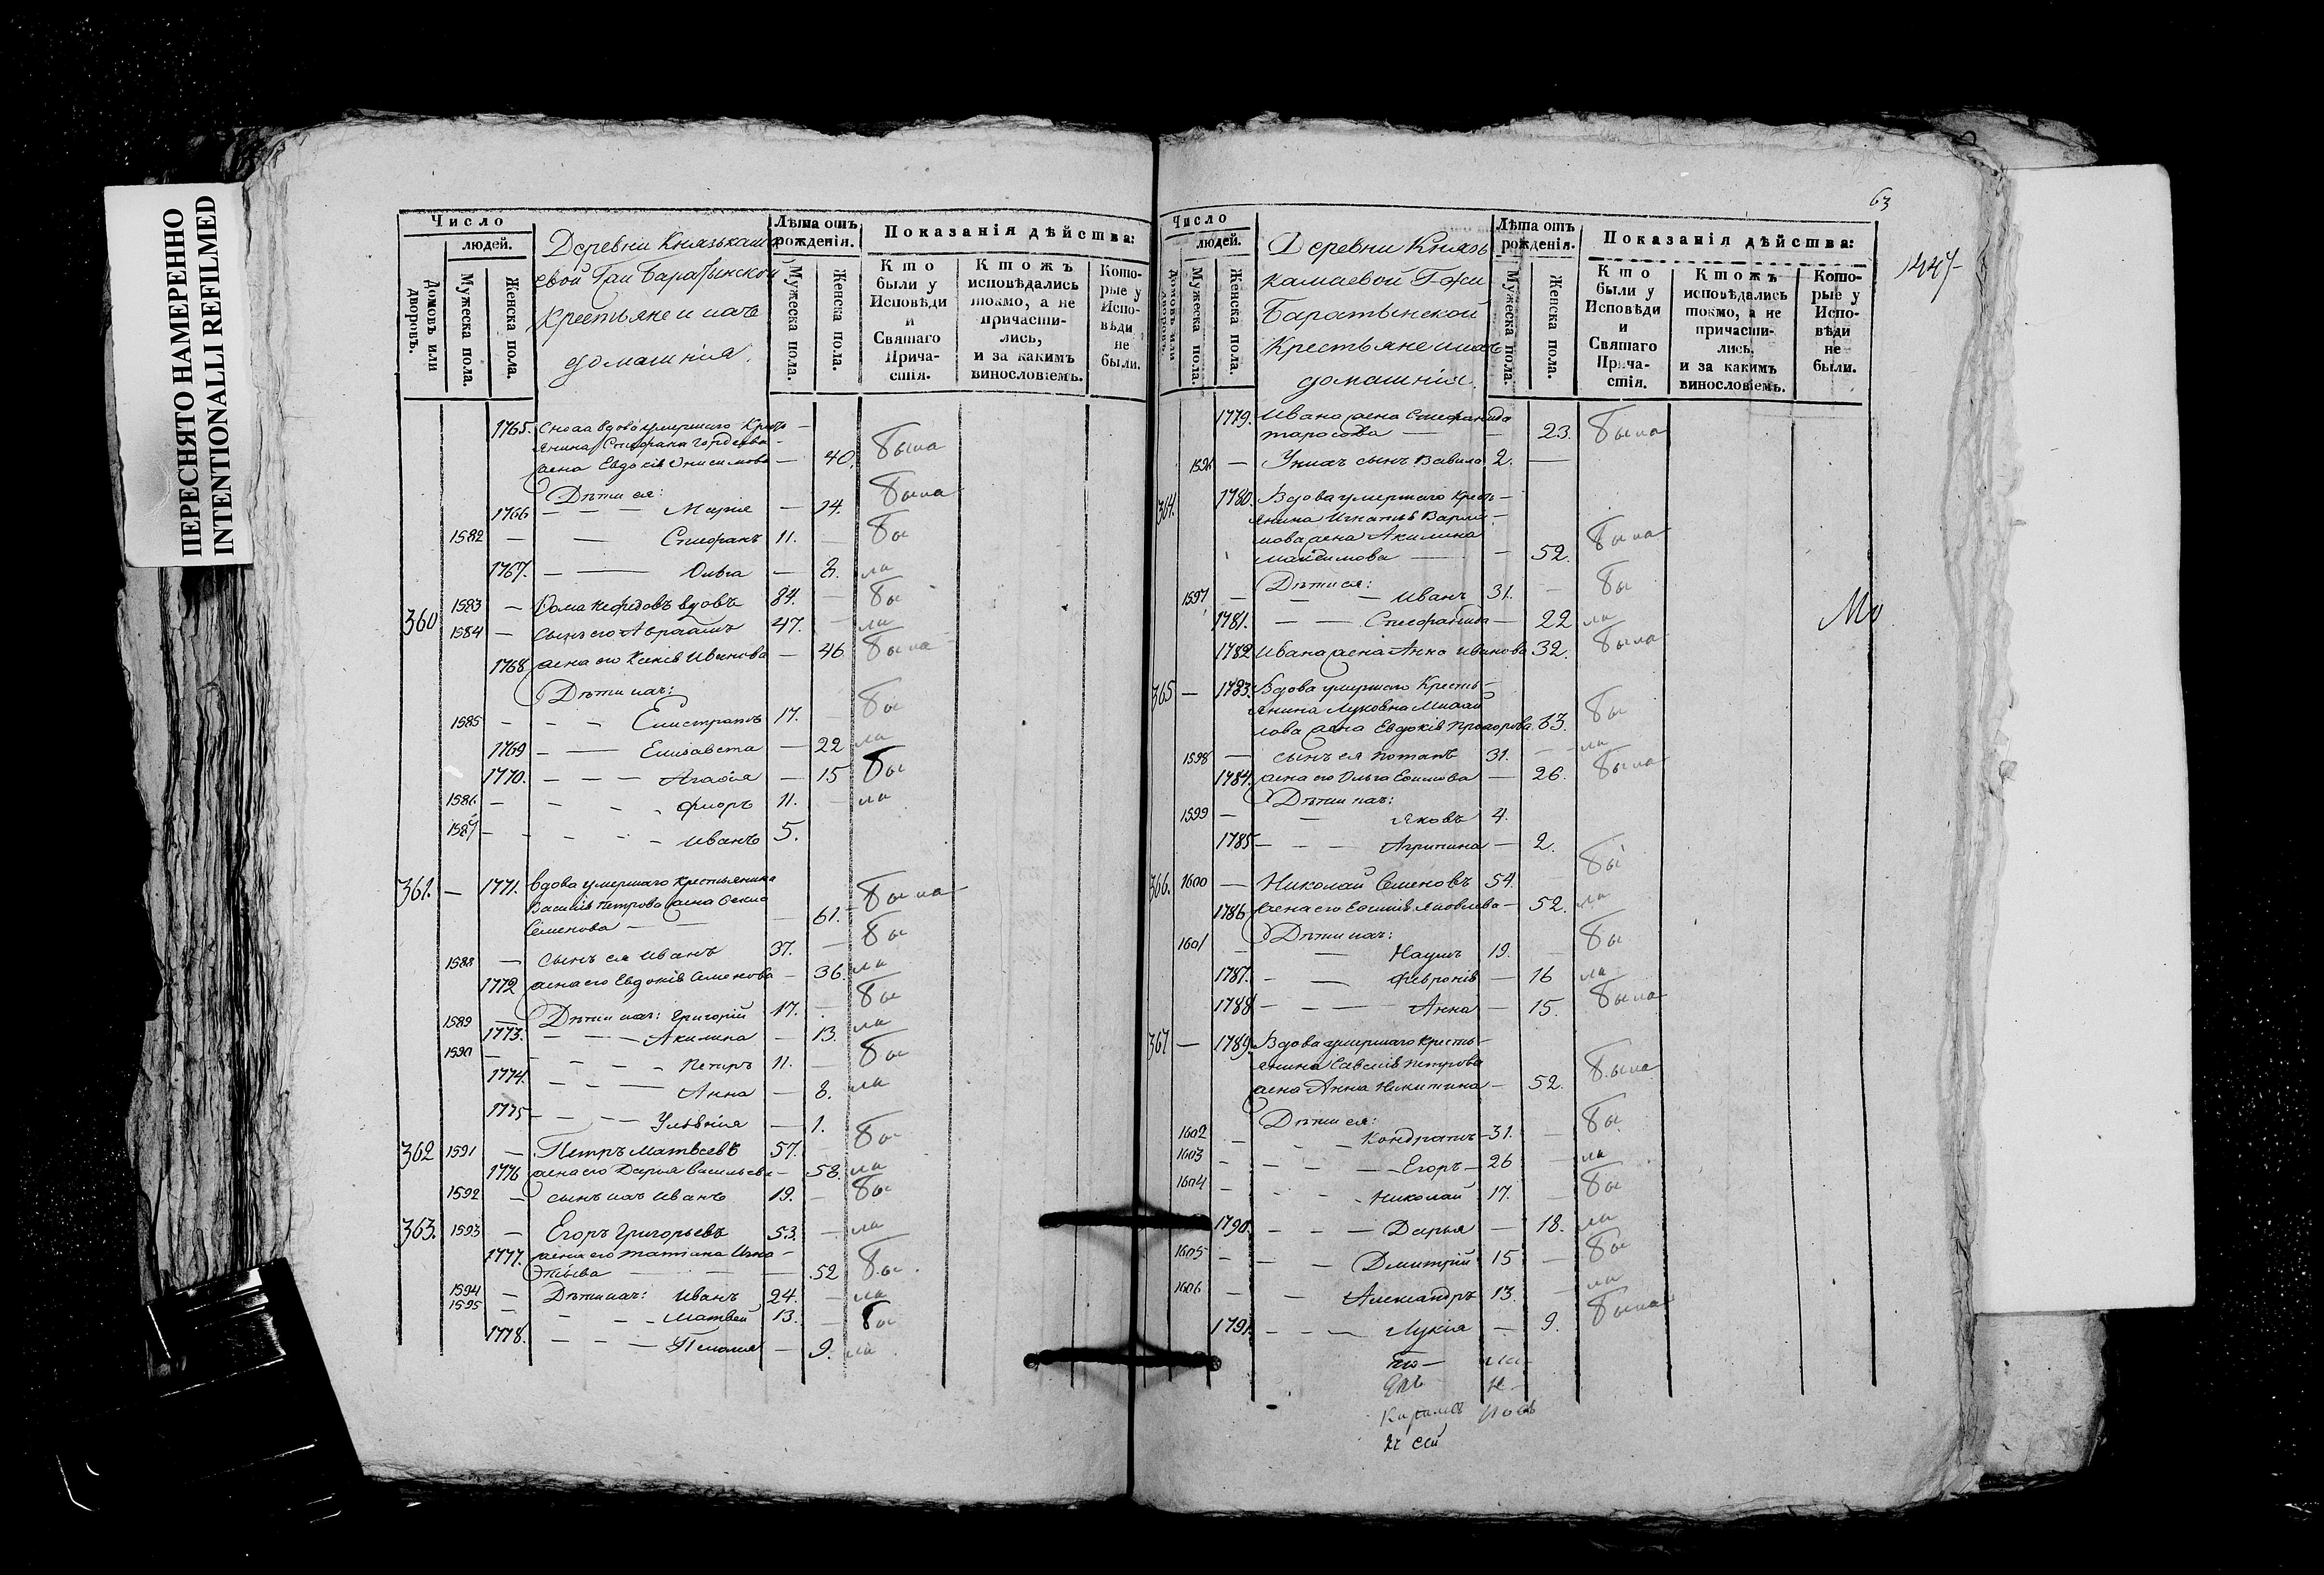 ПЕРЕСНЯТО НАМЕРЕННО
INTENTIONALLI REFILMED
Число
людей.
Домовъ или дворовъ.
Мужеска пола.
Женска пола.
Деревни Князькама
евой Гжи Баратынской
Крестьяне и ихъ
домашнія.
Лѣта отъ рожденія.
Мужеска пола.
Женска пола.
Показанія дѣйства:
Кто были у Исповѣди и Святаго Причастія.
Ктожъ исповѣдались токмо, а не причастились, и за какимъ винословіемъ.
Которые у Исповѣди не были.
1765. Сноха вдова умершаго Кресть-
янина Стефана Гордеева
жена Евдокія Онисимова — 40. была
Дѣти ея:
1766 — — — Марія — 14. была
1582 — — Стефанъ 11. — бы
1767. — — Ольга — 8. ла
360 1583 — Фома Нефедовъ вдовъ 84. — бы
1584 — сынъ его Авраамъ 47. — ла
1768 жена его Ксенія Иванова — 46 была
Дѣти ихъ:
1585 — — — Елистратъ 17. — бы
1769 — — Елизавета — 22 ла
1770. — — — Агафія — 15 бы
1586 — — — Флоръ 11. — ла
1587 — — — Иванъ 5.
361. — 1771. вдова умершаго крестьянина
Василія Петрова жена
Семенова — — 61. была
1588 — сынъ ея Иванъ 37. — бы
1772 жена его Евдокія Семенова — 36. ла
1589 — Дѣти ихъ: Григорій 17. — бы
1773. — — — Акилина — 13. ла
1590 — — — Петръ 11. — бы
1774. — — — Анна — 8. ла
1775 — — — Ульянія — 1.
362 1591 — Петръ Матвеевъ 57. — бы
1776 жена его Дарья Васильева — 58. ла
1592 — сынъ ихъ Иванъ 19. — бы
363. 1593 — Егоръ Григорьевъ 53. — ла
1777. жена его Татіана Игна-
тьева — — 52 бы
1594 — Дѣти ихъ: Иванъ 24. — ла
1595 — — — Матвей 13. — бы
1778. — — — — 9. ла
63
1447
Число
людей.
Домовъ или дворовъ.
Мужеска пола.
Женска пола.
Деревни Князь
камаевой Гжи
Баратынской
Крестьяне и ихъ
домашнія.
Лѣта отъ рожденія.
Мужеска пола.
Женска пола.
Показанія дѣйства:
Кто были у Исповѣди и Святаго Причастія.
Ктожъ исповѣдались токмо, а не причастились, и за какимъ винословіемъ.
Которые у Исповѣди не были.
1779. Ивана жена Стефанида
Тарасова — — 23. была
1596 — У нихъ сынъ Вавила 2. —
364. 1780. Вдова умершаго кресть-
янина Игнатія
жена Акилина
Максимова — — 52. была
Дѣти ея:
1597 — — — Иванъ 31. — бы
1781. — — Стефанида — 22 ла
1782 Ивана жена Анна Иванова 32. была
365 — 1783. Вдова умершаго Кресть-
янина
жена Евдокія Прохорова 63. бы
1598 — сынъ ея Потапъ 31. — ла
1784. жена его Ольга — 26. была
Дѣти ихъ:
1599 — — Яковъ 4.
1785 — — — Агрипина — 2.
366. 1600 — Николай Семеновъ 54. бы
1786 жена его Яковлева — 52. ла
Дѣти ихъ:
1601 — — Наумъ 19. — бы
1787. — — Февронія — 16 ла
1788 — — — Анна — 15. была
367 — 1789. Вдова умершаго кресть-
янина Савелія Петрова
жена Анна Никитина — 52. была
Дѣти ея:
1602 — — — Кондратъ 31. — бы
1603 — — — Егоръ 26 — ла
1604 — — — Николай 17. — бы
1790. — — — Дарья — 18. ла
1605 — — — Дмитрій 15 — бы
1606 — — Александръ 13. — ла
1791. — — — Лукія — 9. была